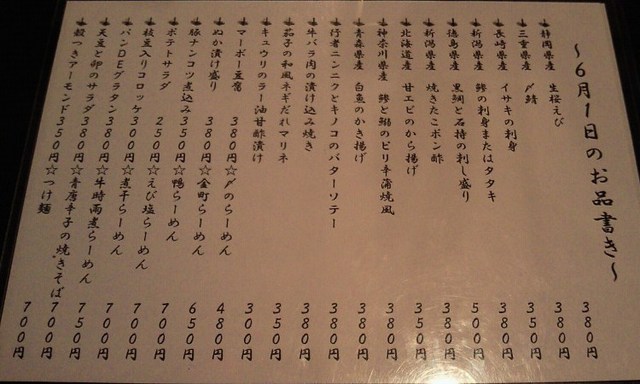 ～6月1日のお品書き～
静岡県産 生桜えび 380円
三重県産 〆鯖 380円
長崎県産 イサキの刺身 350円
新潟県産 鯵の刺身またはタタキ 380円
徳島県産 黒鯛と石持の刺し盛り 500円
新潟県産 焼きたこポン酢 380円
北海道産 甘エビのから揚げ 350円
神奈川県産 鯵と鰯のピリ辛蒲焼風 380円
青森県産 白魚のかき揚げ 380円
行者ニンニクとキノコのバターソテー 380円
牛バラ肉の漬け込み焼き 380円
茄子の和風ネギだれマリネ 350円
キュウリのラー油甘酢漬け 300円
マーボー豆腐 380円☆〆のらーめん 480円
ぬか漬け盛り 380円☆金町らーめん 650円
豚ナンコツ煮込み350円☆鴨らーめん 700円
ポテトサラダ 250円☆えび塩らーめん 700円
枝豆入りコロッケ 300円☆煮干らーめん 700円
パンDEグラタン 380円☆牛時雨煮らーめん 750円
天豆と卵のサラダ380円☆青唐辛子の焼きそば 700円
殻つきアーモンド350円☆つけ麺 700円